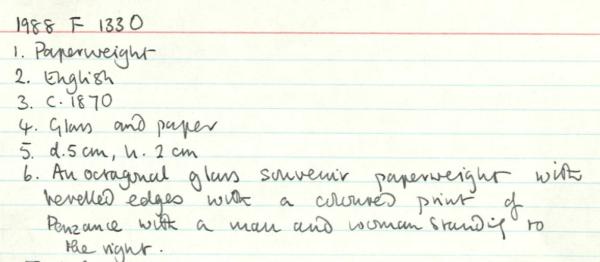 1988 F 1330
1. Paperweight
2. English
3. c. 1870
4. Glass and paper
5. d. 5 cm, h. 2 cm
6. An octagonal glass souvenir paperweight with
bevelled edges with a coloured print of
Penzance with a man and woman standing to
the right.